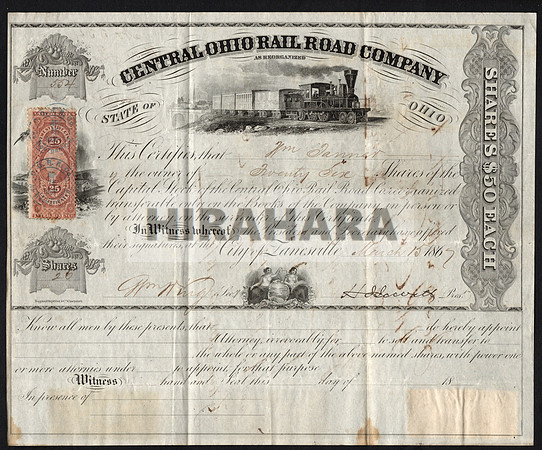 CENTRAL OHIO RAIL ROAD COMPANY
AS REORGANIZED
Number
STATE OF OHIO
SHARES $50 EACH
25
25
This Certifies, that Wm
is the owner of Twenty Six Shares of the
Capital Stock of the Central Ohio Rail Road Co. as reorganized
transferable only on the Books of the Company in person or
by
HIRAHARA
In Witness whereof
their signatures at the City of Zanesville March 18 1867
Shares
26
Pres.
Know all men by these presents, that do hereby appoint
Attorney, irrevocably for to sell and transfer to
the whole or any part of the above named shares, with power one
or more attornies under to appoint for that purpose
Witness hand and Seal this day of 18
In presence of